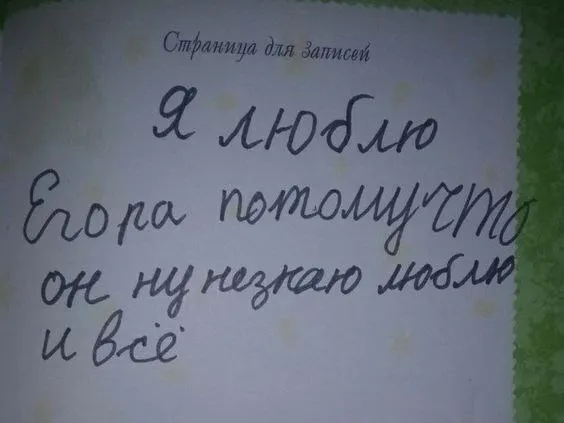 Страница для записей
Я люблю
Егора потомучто
он ну незнаю люблю
и всё